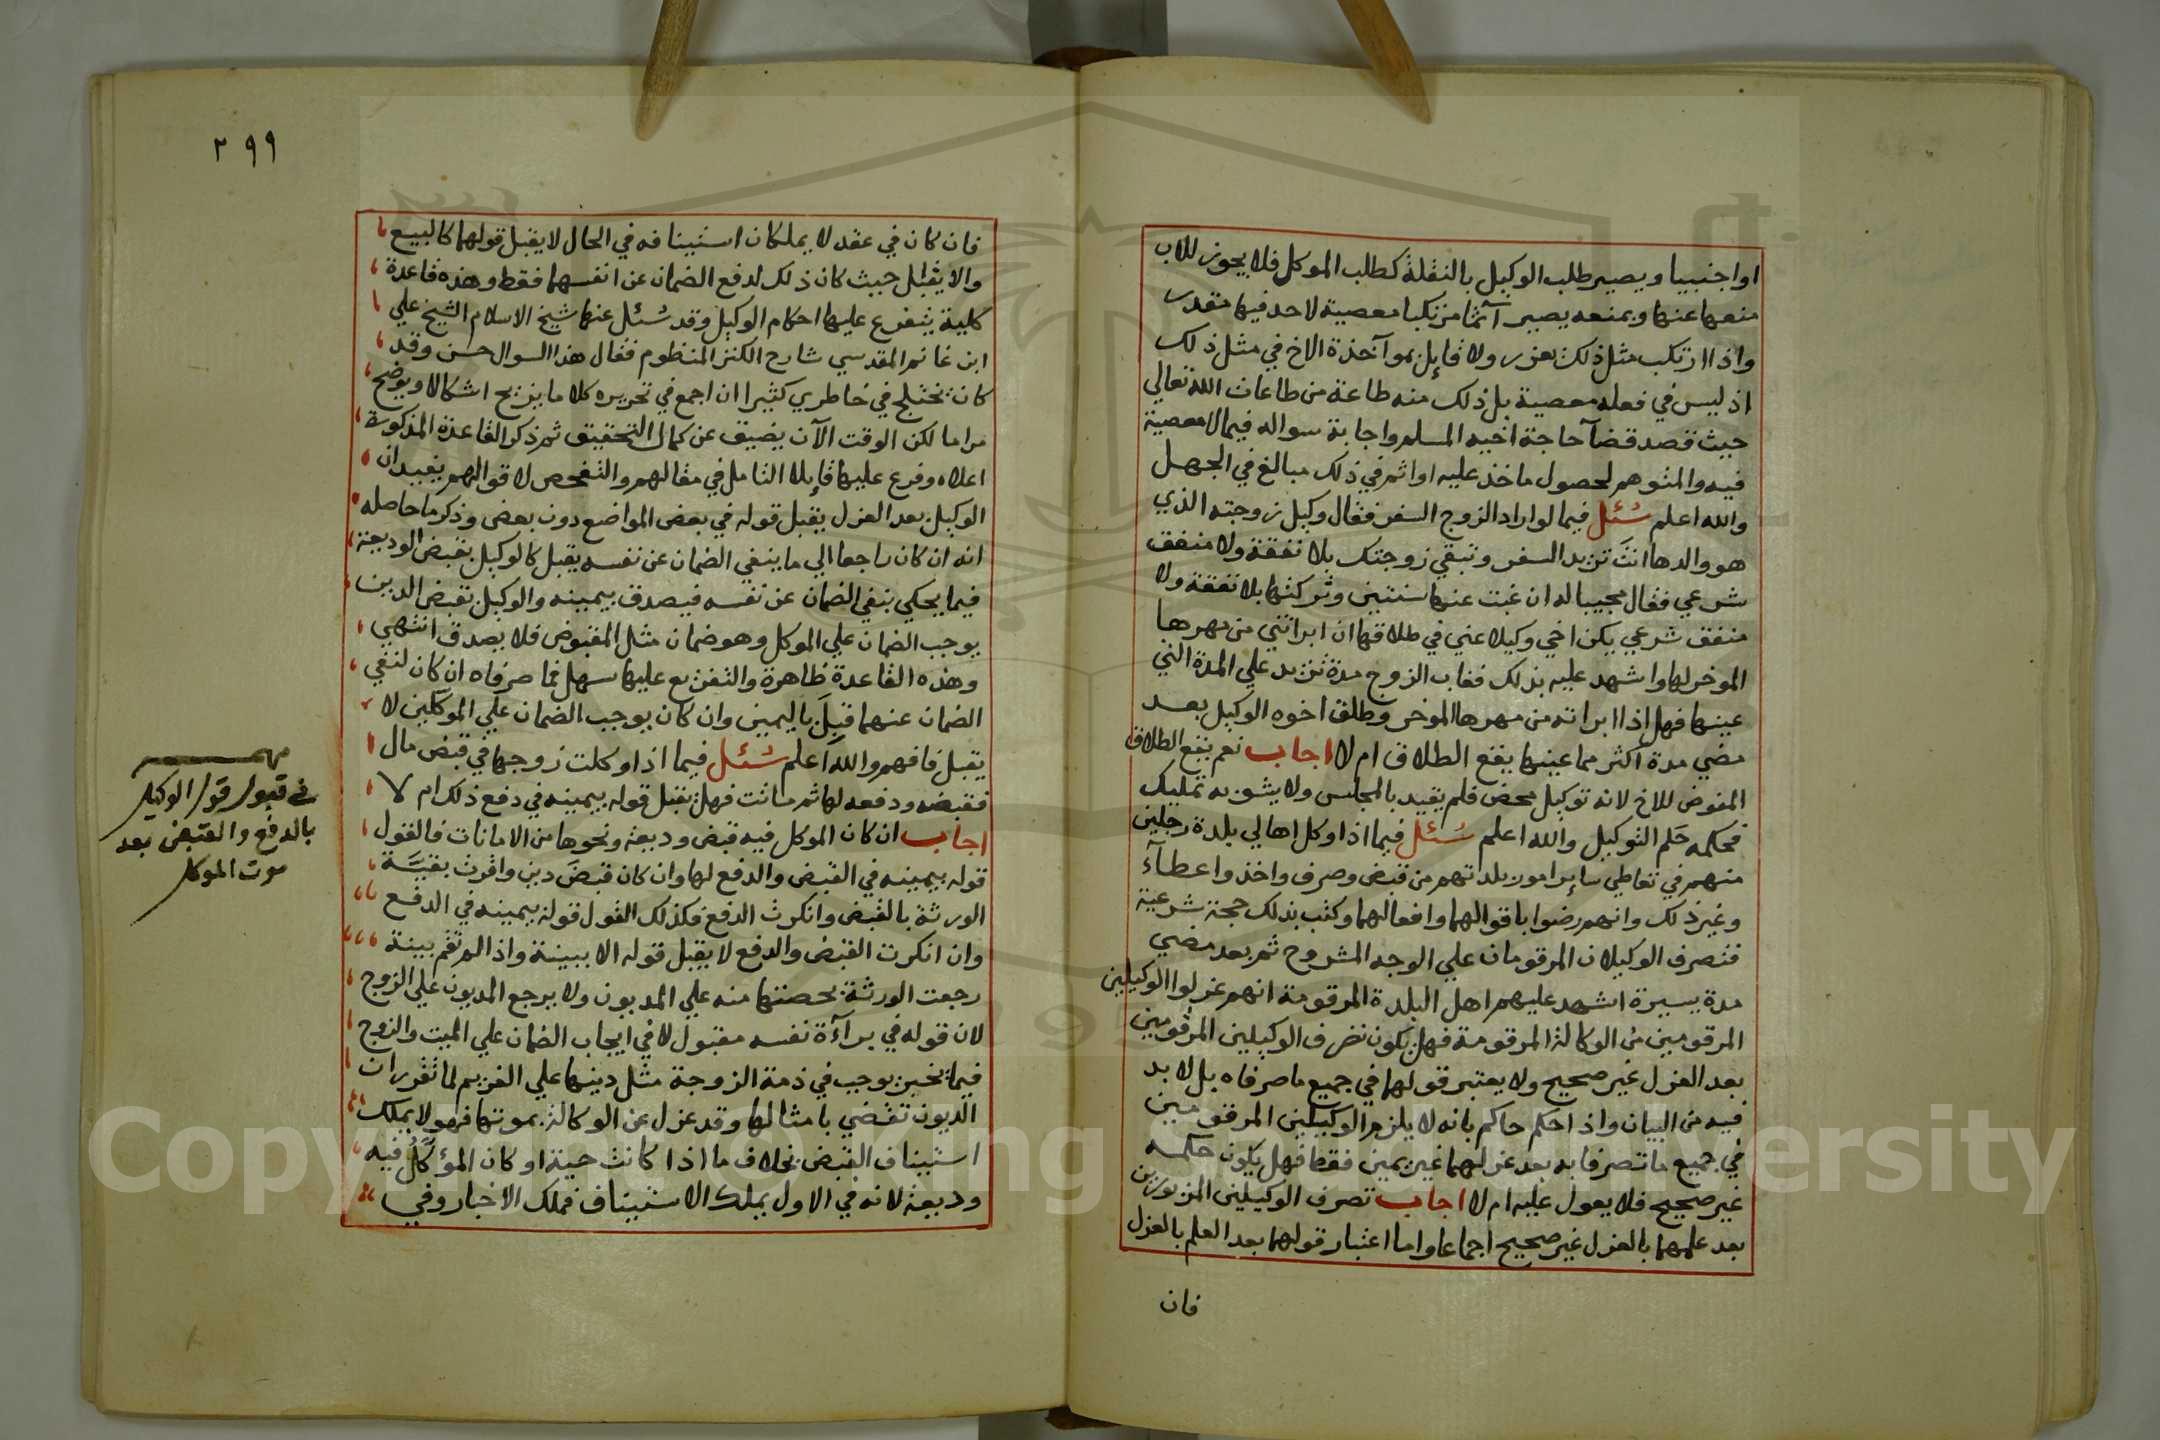 او اجنبيا ويصير طلب الوكيل بالنقلة كطلب الموكل فلا يجوز للاب
منعها عنها وبمنعه يصير آثما مرتكبا معصية لا حد فيها مقدر
واذا ارتكب مثل ذلك يعزر ولا قايل بمواخذة الاخ في مثل ذلك
اذ ليس في فعله معصية بل ذلك منه طاعة من طاعات الله تعالي
حيث قصد قضآ حاجة اخيه المسلم واجابة سواله فيما لا معصية
فيه والمتوهم لحصول ماخذ عليه او اثم في ذلك مبالغ في الجهل
والله اعلم سُئل فيما لو اراد الزوج السفر فقال وكيل زوجته الذي
هو والدها انتَ تريد السفر وتبقي زوجتك بلا نفقة ولا منفق
شرعي فقال مجيبا له ان غبت عنها سنتين وتركتها بلا نفقة ولا
منفق شرعي يكن اخي وكيلا عني في طلاقها ان ابراتني من مهرها
الموخر لها واشهد عليه بذلك فغاب الزوج مدة تزيد علي المدة التي
عينها فهل اذا ابراته من مهرها الموخر وطلق اخوه الوكيل بعد
مضي مدة اكثر مما عينها يقع الطلاق ام لا اجاب نعم يقع الطلاق
المفوض للاخ لانه توكيل محض فلم يقيد بالمجلس ولا يشوبه تمليك
فحكمه حكم التوكيل والله اعلم سُئل فيما اذا وكل اهالي بلدة رجلين
منهم في تعاطي ساير امور بلدتهم من قبض وصرف واخذ واعطآء
وغير ذلك وانهم رضوا باقوالهما وافعالهما وكتب بذلك حجة شرعية
فتصرف الوكيلان المرقومان علي الوجه المشروح ثم بعد مضي
مدة يسيرة اشهد عليهم اهل البلدة المرقومة انهم عزلوا الوكيلين
المرقومين من الوكالة المرقومة فهل يكون تصرف الوكيلين المرقومين
بعد العزل غير صحيح ولا يعتبر قولهما في جميع ما صرفاه بل لا بد
فيه من البيان واذا حكم حاكم بانه لا يلزم الوكيلين المرقومين
في جميع ما تصرفا به بعد عزلهما غير يمين فقط فهل يكون حكمه
غير صحيح فلا يعول عليه ام لا اجاب تصرف الوكيلين المزبورين
بعد علمهما بالعزل غير صحيح اجماعا واما اعتبار قولهما بعد العلم بالعزل
فان
٢٩٩
فان كان في عقد لا يملكان استينافه في الحال لا يقبل قولهما كالبيع
والا يقبل حيث كان ذلك لدفع الضمان عن انفسهما فقط وهذه قاعدة
كلية يتفرع عليها احكام الوكيل وقد سُئل عنها شيخ الاسلام الشيخ علي
ابن غانم المقدسي شارح الكنز المنظوم فقال هذا السوال حسن وقد
كان يختلج في خاطري كثيرا ان اجمع في تحريره كلاما يزيح اشكالا ويوضح
مراما لكن الوقت الآن يضيق عن كمال التحقيق ثم ذكر القاعدة المذكورة
اعلاه وفرع عليها قايلا التامل في مقالهم والتفحص لاقوالهم يفيد ان
الوكيل بعد العزل يقبل قوله في بعض المواضع دون بعض وذكر ما حاصله
انه ان كان راجعا الي ما ينفي الضمان عن نفسه يقبل كالوكيل بقبض الوديعة
فيما يحكي بنفي الضمان عن نفسه فيصدق بيمينه والوكيل بقبض الدين
يوجب الضمان علي الموكل وهو ضمان مثل المقبوض فلا يصدق انتهي
وهذه القاعدة ظاهرة والتفريع عليها سهل فما صرفاه ان كان لنفي
الضمان عنهما قبل باليمين وان كان يوجب الضمان علي الموكلين لا
يقبل فافهم والله اعلم سُئل فيما اذا وكلت زوجها في قبض مال
فقبضه ودفعه لها ثم ماتت فهل يقبل قوله بيمينه في دفع ذلك ام لا
اجاب ان كان الموكل فيه قبض وديعة ونحوها من الامانات فالقول
قوله بيمينه في القبض والدفع لها وان كان قبضَ دين واقرت بقيَّة
الورثة بالقبض وانكرت الدفع فكذلك القول قوله بيمينه في الدفع
وان انكرت القبض والدفع لا يقبل قوله الا ببينة واذا لم تقم بينة
رجعت الورثة بحصتها منه علي المديون ولا يرجع المديون علي الزوج
لان قوله في برآءة نفسه مقبول لا في ايجاب الضمان علي الميت والزوج
فيما يخبر يوجب في ذمة الزوجة مثل دينها علي الغريم لما تقرر ان
الديون تقضي بامثالها وقد عزل عن الوكالة بموتها فهو لا يملك
استيناف القبض بخلاف ما اذا كانت حية او كان الموكَّل فيه
وديعة لانه في الاول يملك الاستيناف فملك الاخبار وفي
مهم
في قبول قول الوكيل
بالدفع والقبض بعد
موت الموكل
Copyright © King Saud University